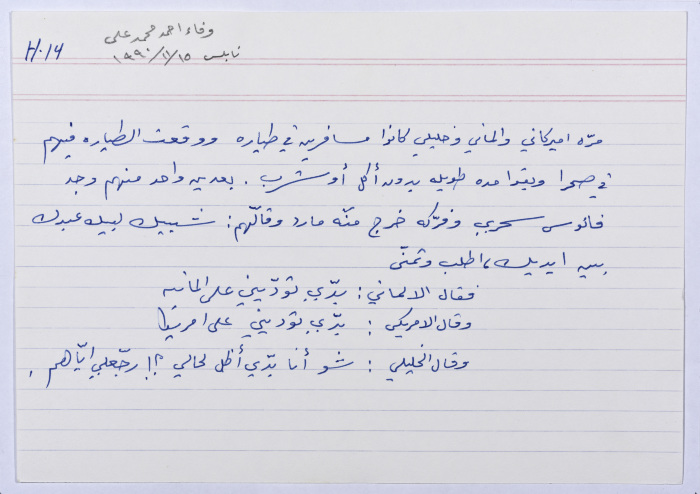 وفاء احمد محمد علي
H.14
نابلس ١٩٩٠/١١/١٥
مرّه اميركاني والماني وخليلي كانوا مسافرين في طياره ووقعت الطياره فيهم
في صحرا وبقوا مده طويله بدون أكل أو شرب . بعدين واحد منهم وجد
فانوس سحري وفركه خرج منّه مارد وقالّهم : شبيك لبيك عبدك
بين ايديك، اطلب وتمنّى
فقال الالماني : بدّي تودّيني على المانيه
وقال الامريكي : بدّي توديني على امريكا
وقال الخليلي : شو أنا بدّي أظل لحالي ؟! رجّعلي ايّاهم .